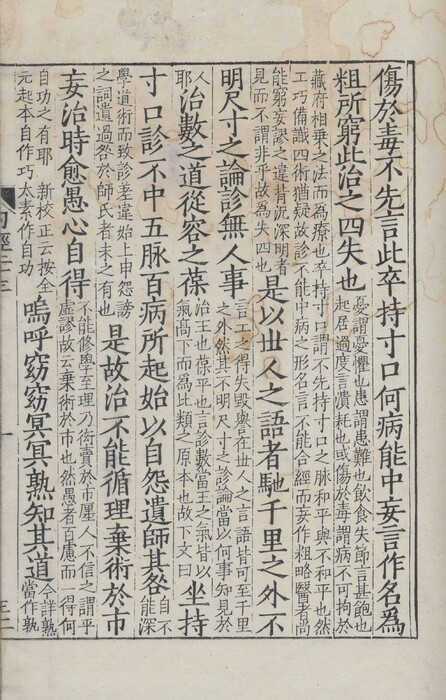 傷於毒不先言此卒持寸口何病能中妄言作名爲
粗所窮此治之四失也
憂謂憂懼也患謂患難也飲食失節言甚飽也
起居過度言潰耗也或傷於毒謂病不可拘於
藏府相乗之法而爲療也卒持寸口謂不先持寸口之脉和平與不和平也然
工巧備識四術猶疑故診不能中病之形名言不能合經而妄作粗略醫者尚
能窮妄謬之違背況深明者
見而不謂非乎故爲失四也
是以世人之語者馳千里之外不
明尺寸之論診無人事
言工之得失毀譽在世人之言語皆可至千里
之外然其不明尺寸之診論當以何事知見於
人
耶
治數之道從容之葆
治王也葆平也言診數當王之氣皆以
氣高下而爲比類之原本也故下文曰
坐持
寸口診不中五脉百病所起始以自怨遺師其咎
自不
能深
學道術而致診差違始上申怨謗
之詞遺過咎於師氏者未之有也
是故治不能循理棄術於市
妄治時愈愚心自得
不能修學至理乃衒賣於市廛人不信之謂乎
虛謬故云棄術於市也然愚者百慮而一得何
自功之有耶 新校正云按全
元起本自作巧太素作自功
嗚呼窈窈冥冥熟知其道
今詳熟
當作孰